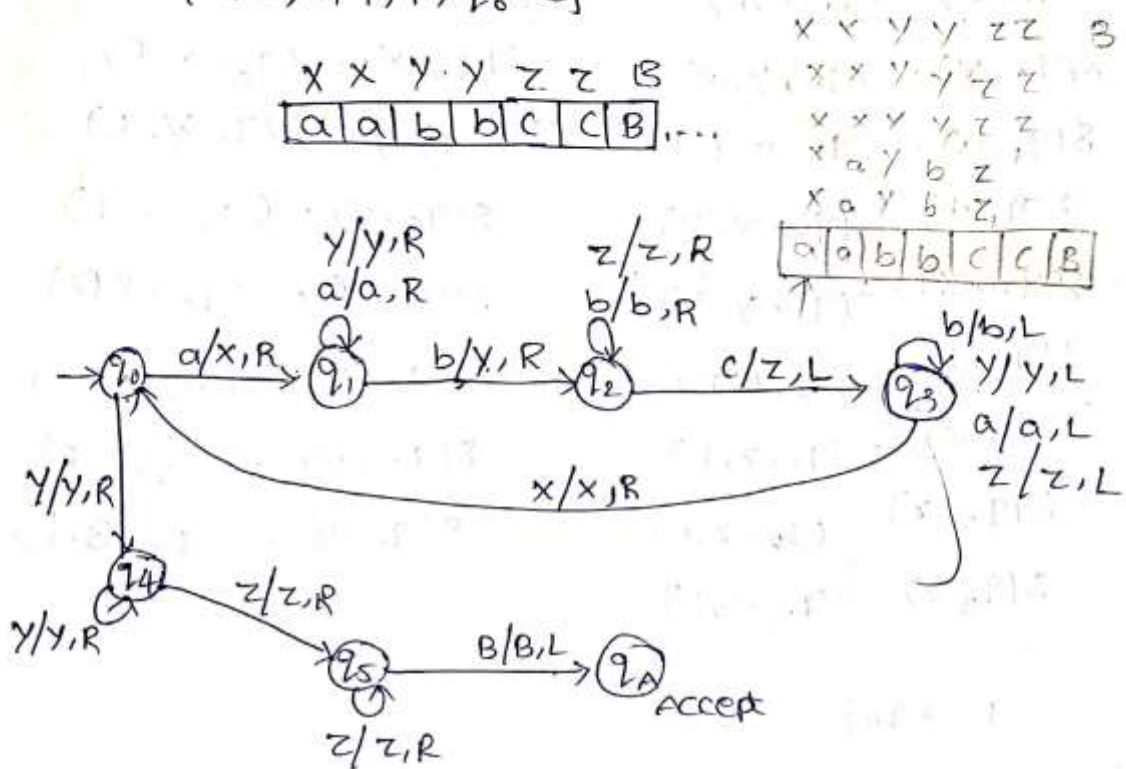 x x y y z z B
x x y y z z
X X Y Y Z Z B
a a b b c c B ....
x x y y z z
x a y b z
x a y b z
a a b b c c B
y/y,R
a/a,R
z/z,R
b/b,R
b/b,L
y/y,L
a/a,L
z/z,L
q0
a/x,R
q1
b/y,R
q2
c/z,L
q3
x/x,R
y/y,R
q4
y/y,R
z/z,R
q5
z/z,R
B/B,L
qA
Accept